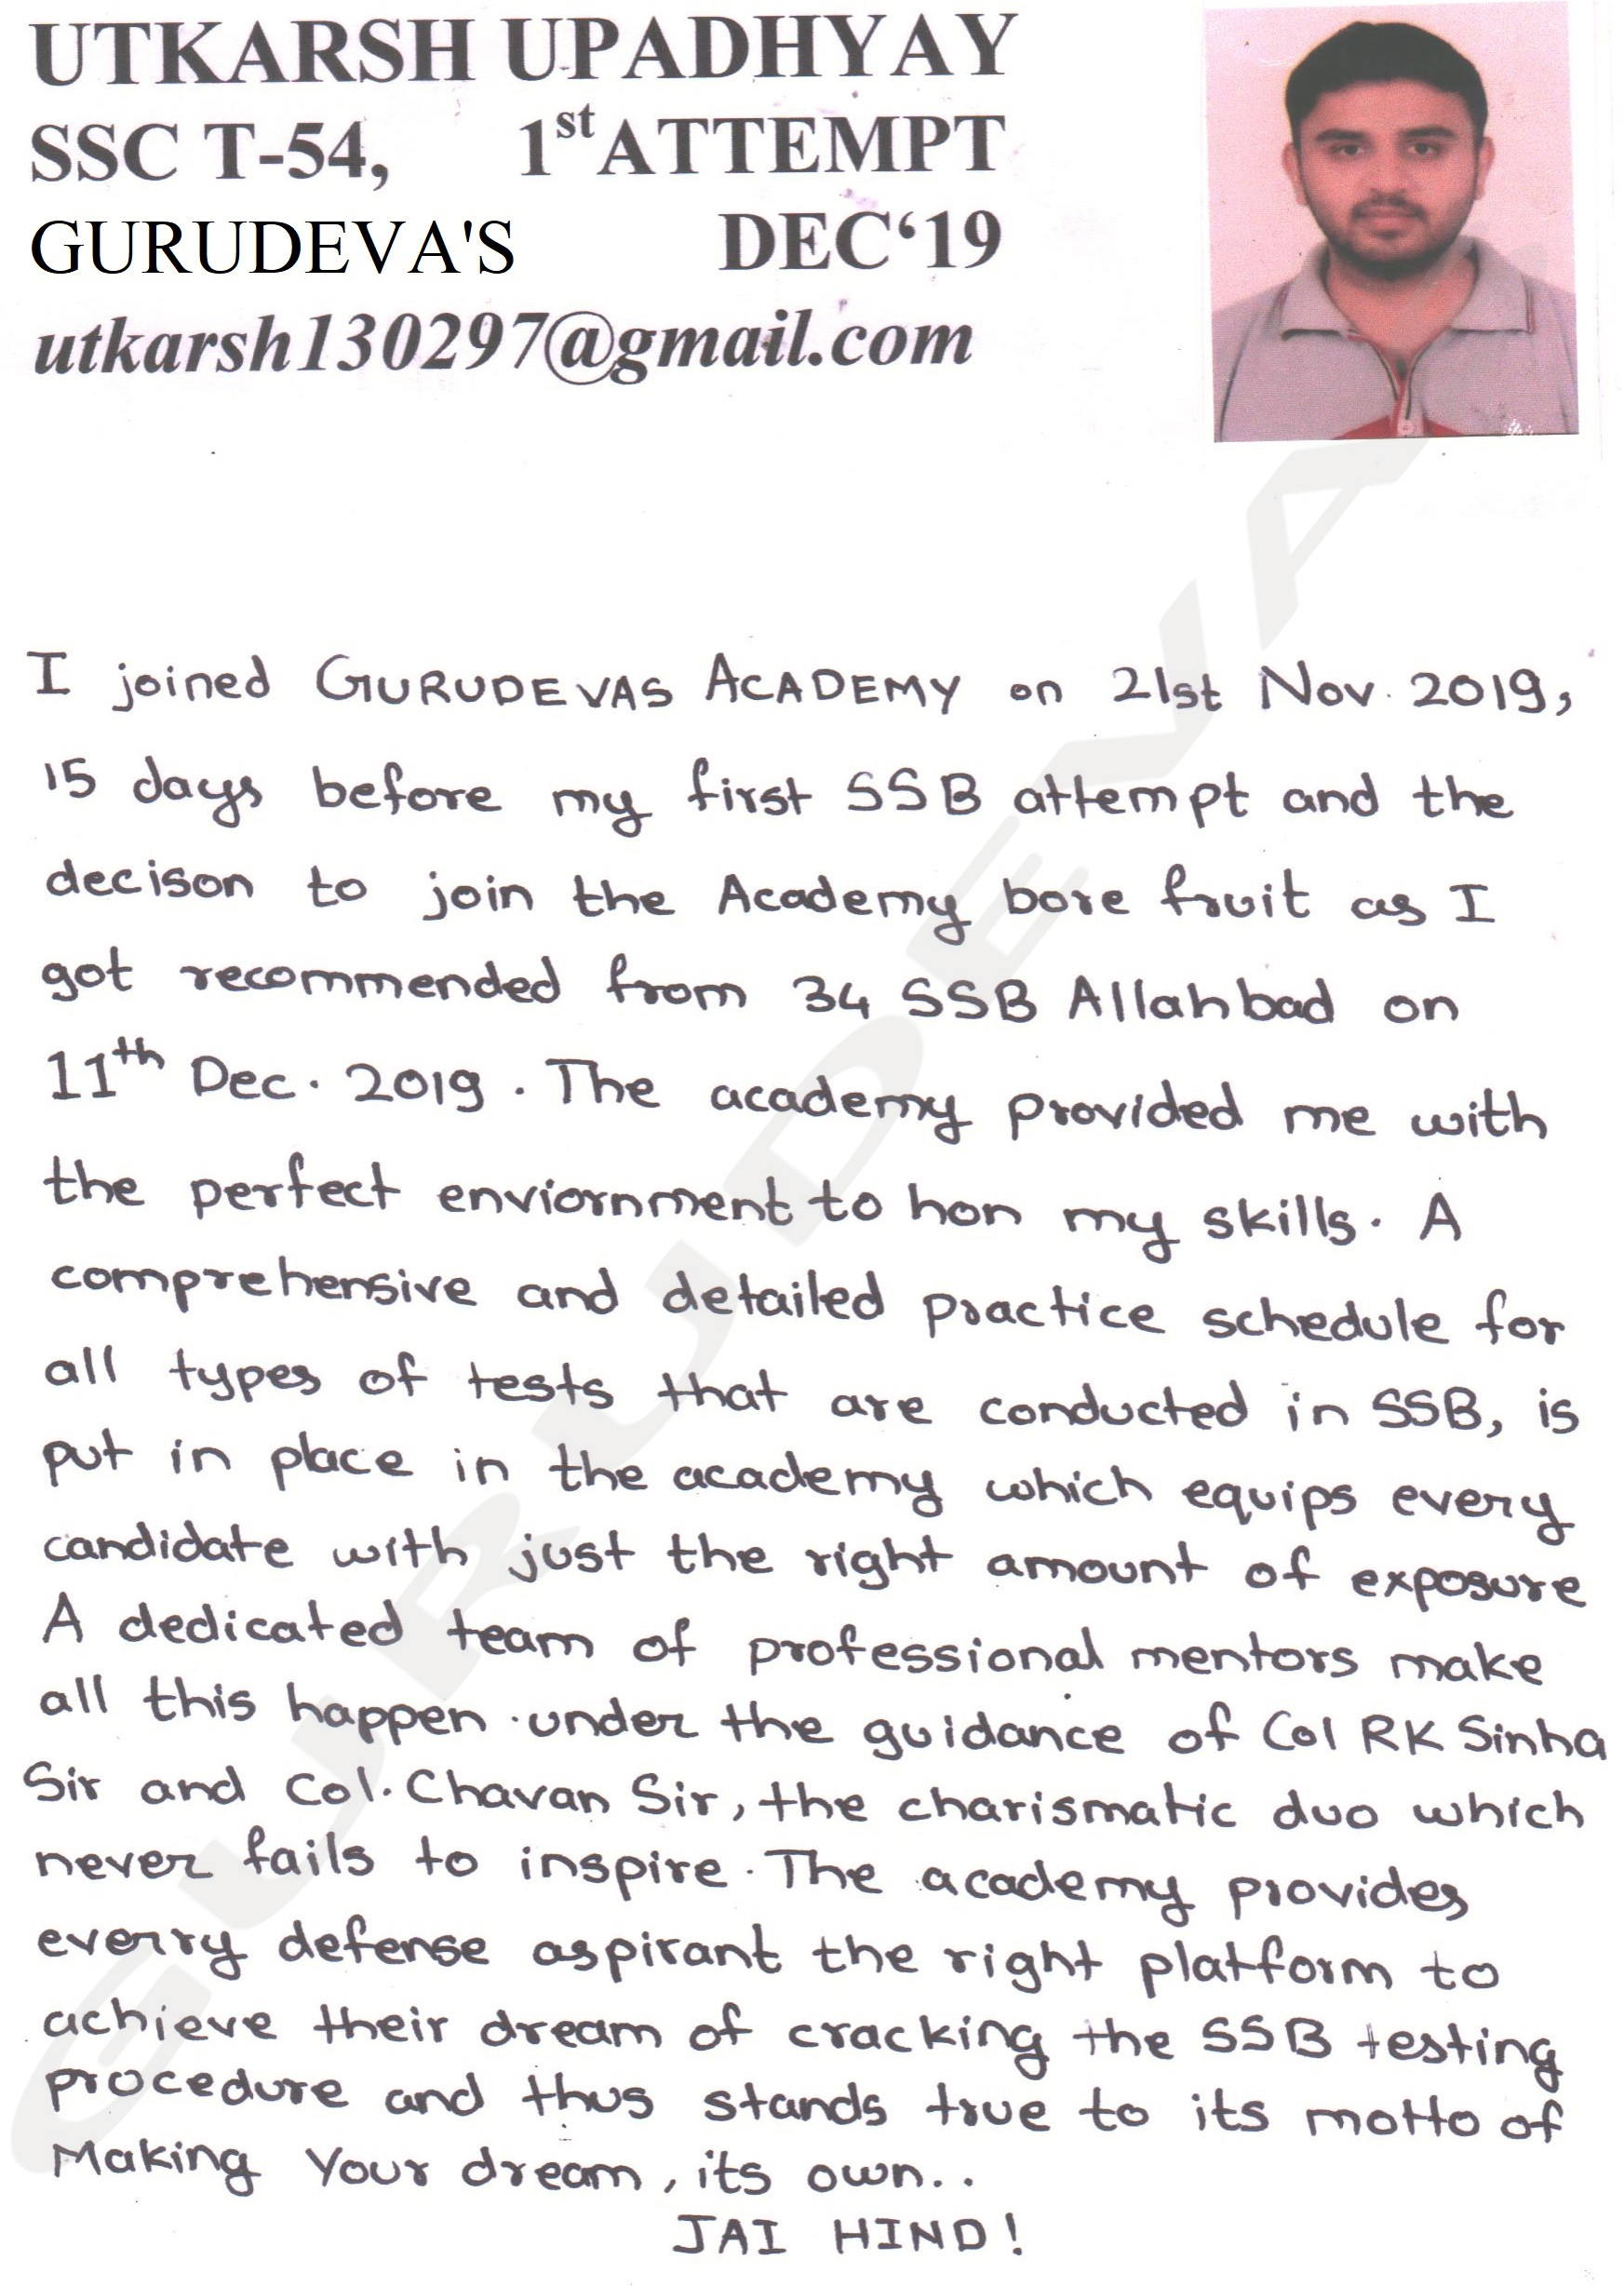 UTKARSH UPADHYAY
SSC T-54, 1st ATTEMPT
GURUDEVA'S DEC‘19
utkarsh130297@gmail.com
I joined GURUDEVAS ACADEMY on 21st Nov. 2019,
15 days before my first SSB attempt and the
decison to join the Academy bore fruit as I
got recommended from 34 SSB Allahbad on
11th Dec. 2019. The academy provided me with
the perfect enviornment to hon my skills. A
comprehensive and detailed practice schedule for
all types of tests that are conducted in SSB, is
put in place in the academy which equips every
candidate with just the right amount of exposure
A dedicated team of professional mentors make
all this happen under the guidance of Col RK Sinha
Sir and Col. Chavan Sir, the charismatic duo which
never fails to inspire. The academy provides
everry defense aspirant the right platform to
achieve their dream of cracking the SSB testing
procedure and thus stands true to its motto of
Making Your dream, its own..
JAI HIND!
GURUDEVA